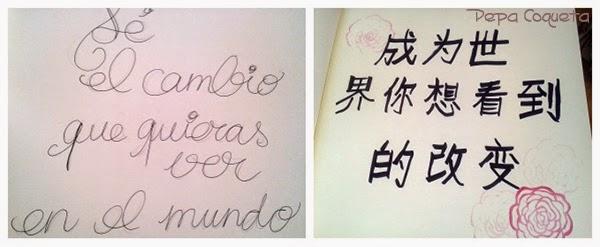 Sé
el cambio
que quieras
ver
en el mundo
Pepa Coqueta
成为世
界你想看到
的改变